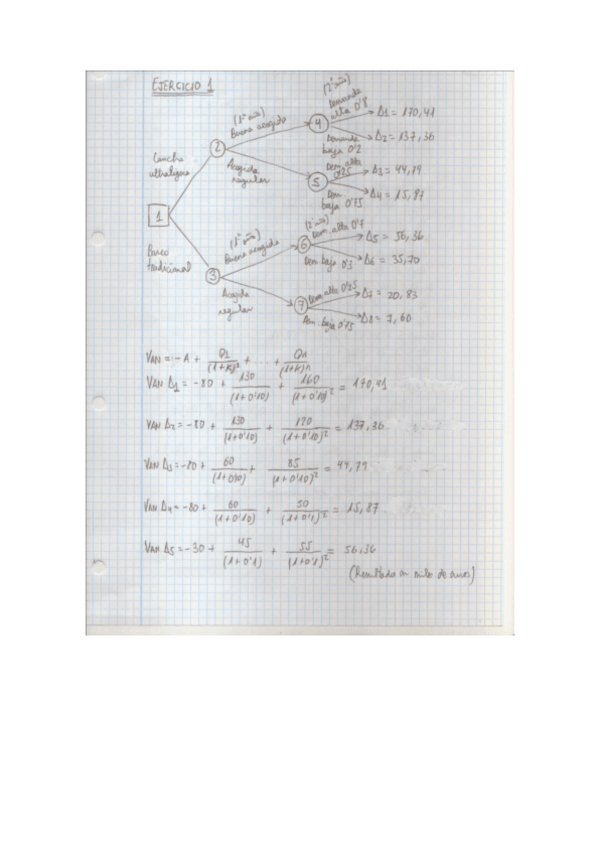 EJERCICIO 1
(2º año)
Demanda
alta 0'8
Δ1 = 170,41
(1º año)
Buena acogida
4
Demanda
baja 0'2
Δ2 = 137,36
2
Cancha
ultraligera
Acogida
regular
5
Dem alta
0'25
Δ3 = 44,79
Dem.
baja 0'75
Δ4 = 15,87
1
(2º año)
Dem alta 0'7
Δ5 = 56,36
(1º año)
Buena acogida
6
Dem baja 0'3
Δ6 = 35,70
Barco
tradicional
3
Acogida
regular
7
Dem alta 0'25
Δ7 = 20,83
Dem. baja 0'75
Δ8 = 7,60
VAN = -A + Q1/(1+K)² + ... + Qn/(1+K)n
VAN Δ1 = -80 + 130/(1+0'10) + 160/(1+0'10)² = 170,41
VAN Δ2 = -80 + 130/(1+0'10) + 120/(1+0'10)² = 137,36
VAN Δ3 = -80 + 60/(1+0'10) + 85/(1+0'10)² = 44,79
VAN Δ4 = -80 + 60/(1+0'10) + 50/(1+0'1)² = 15,87
VAN Δ5 = -30 + 45/(1+0'1) + 55/(1+0'1)² = 56,36
(Resultado en miles de euros)